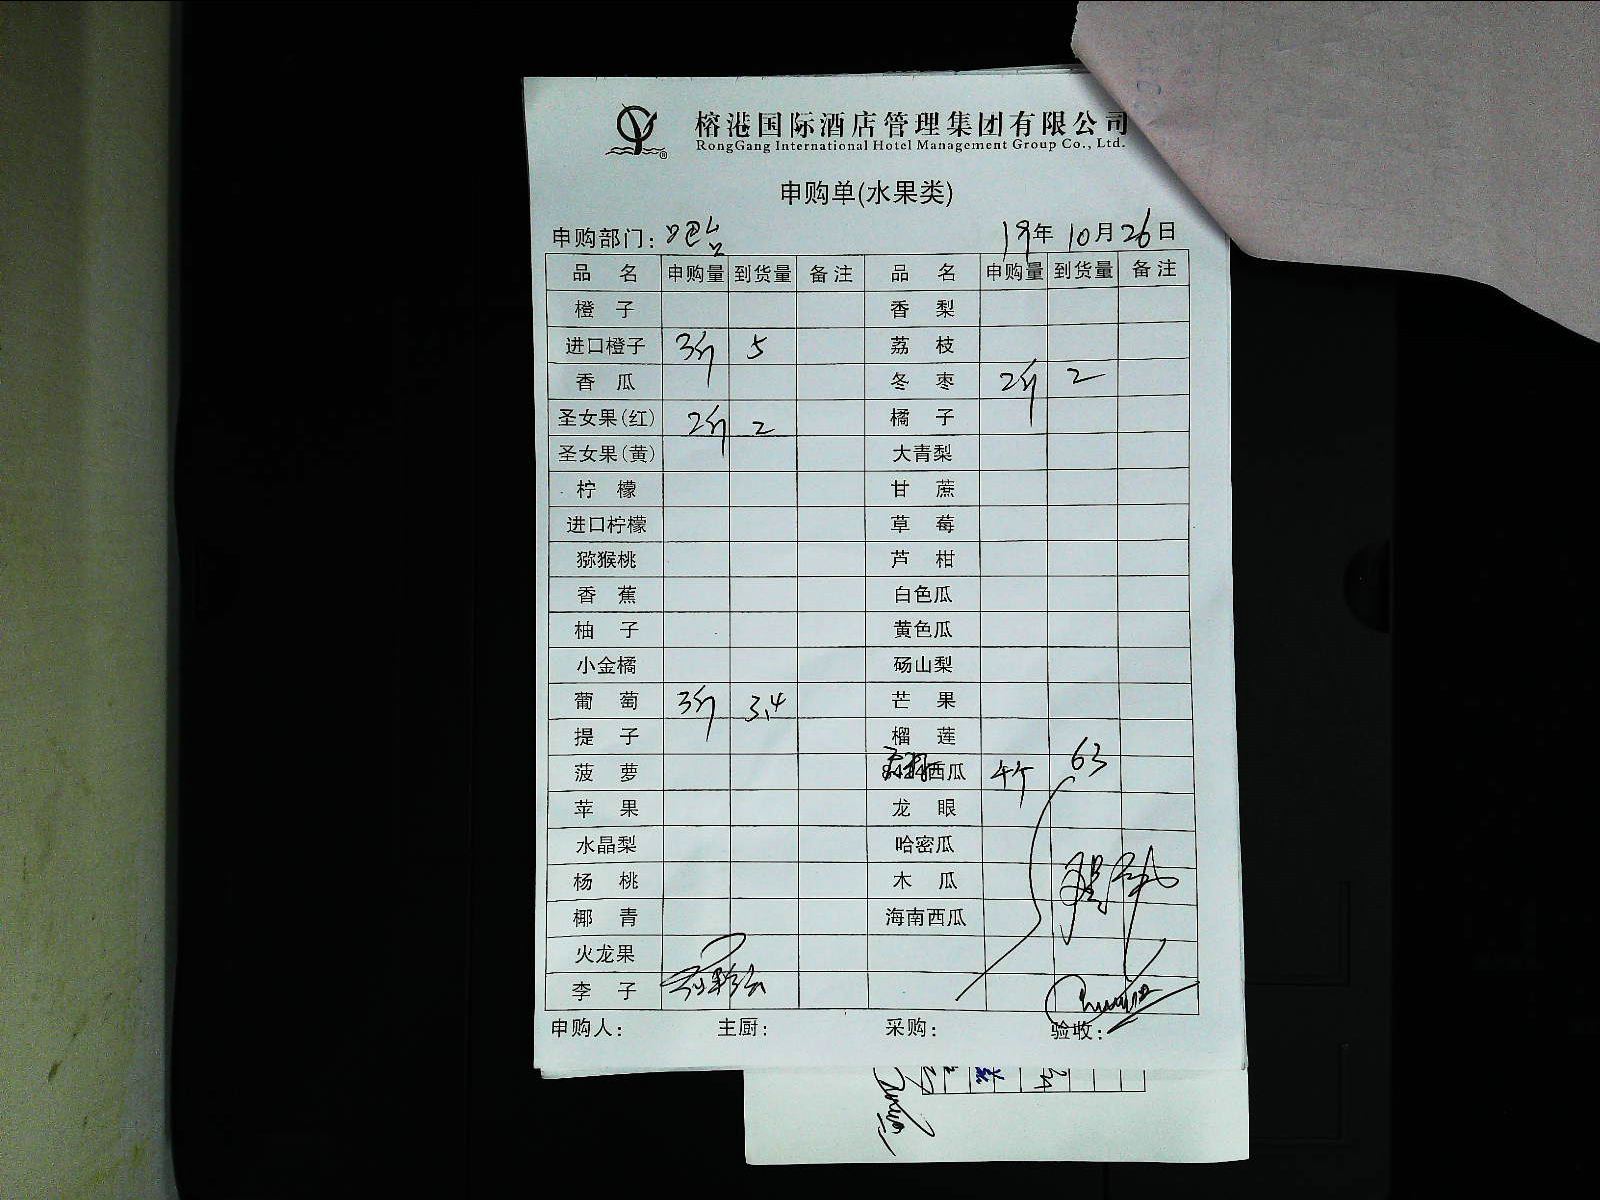 榕港国际酒店管理集团有限公司
RongGang International Hotel Management Group Co., Ltd.
申购单(水果类)
申购部门: 吧台 19年 10月 26日
品 名 申购量 到货量 备注 品 名 申购量 到货量 备注
橙 子 香 梨
进口橙子 3斤 5 荔 枝
香 瓜 冬 枣 2斤 2
圣女果(红) 2斤 2 橘 子
圣女果(黄) 大青梨
柠 檬 甘 蔗
进口柠檬 草 莓
猕猴桃 芦 柑
香 蕉 白色瓜
柚 子 黄色瓜
小金橘 砀山梨
葡 萄 3斤 3.4 芒 果
提 子 榴 莲
菠 萝 西瓜 63
苹 果 龙 眼
水晶梨 哈密瓜
杨 桃 木 瓜
椰 青 海南西瓜
火龙果
李 子
申购人: 主厨: 采购: 验收: